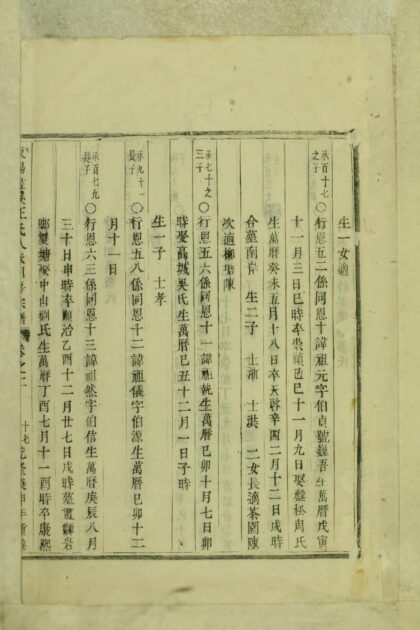 生一女適
承百十七之子
○行恩五二係同恩十諱祖元字伯貞號巍吾生萬曆戊寅
十一月三日巳時卒崇禎己巳十一月九日娶盤松周氏
生萬曆癸未五月十八日卒天啓辛酉二月十二日戌時
合墓南岸 生二子 士瀚 士洪 二女長適茶園陳
次適柳塘陳
承七十之三子
○行恩五六係同恩十一諱祖執生萬曆己卯十月七日卯
時娶高城吳氏生萬曆己丑十二月一日子時
生一子 士孝
承九十一長子
○行恩五八係同恩十二諱祖儀字伯源生萬曆己卯十二
月十一日
承百七九長子
○行恩六三係同恩十三諱祖然字伯信生萬曆庚辰八月
三十日申時卒順治乙酉十二月廿七日戌時墓畫獅岩
鄉塘娶中山劉氏生萬曆丁酉七月十一酉時卒康熙
王氏 卷之二 十七 乾隆 年重